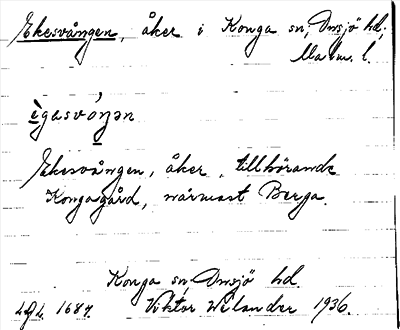 Ekesvången, åker i Konga sn, Onsjö hd,
Malm. l.
ègasvóŋən
Ekesvången, åker, tillhörande
Kongagård, närmast Berga.
Konga sn, Onsjö hd.
1684. Viktor Welander 1936.